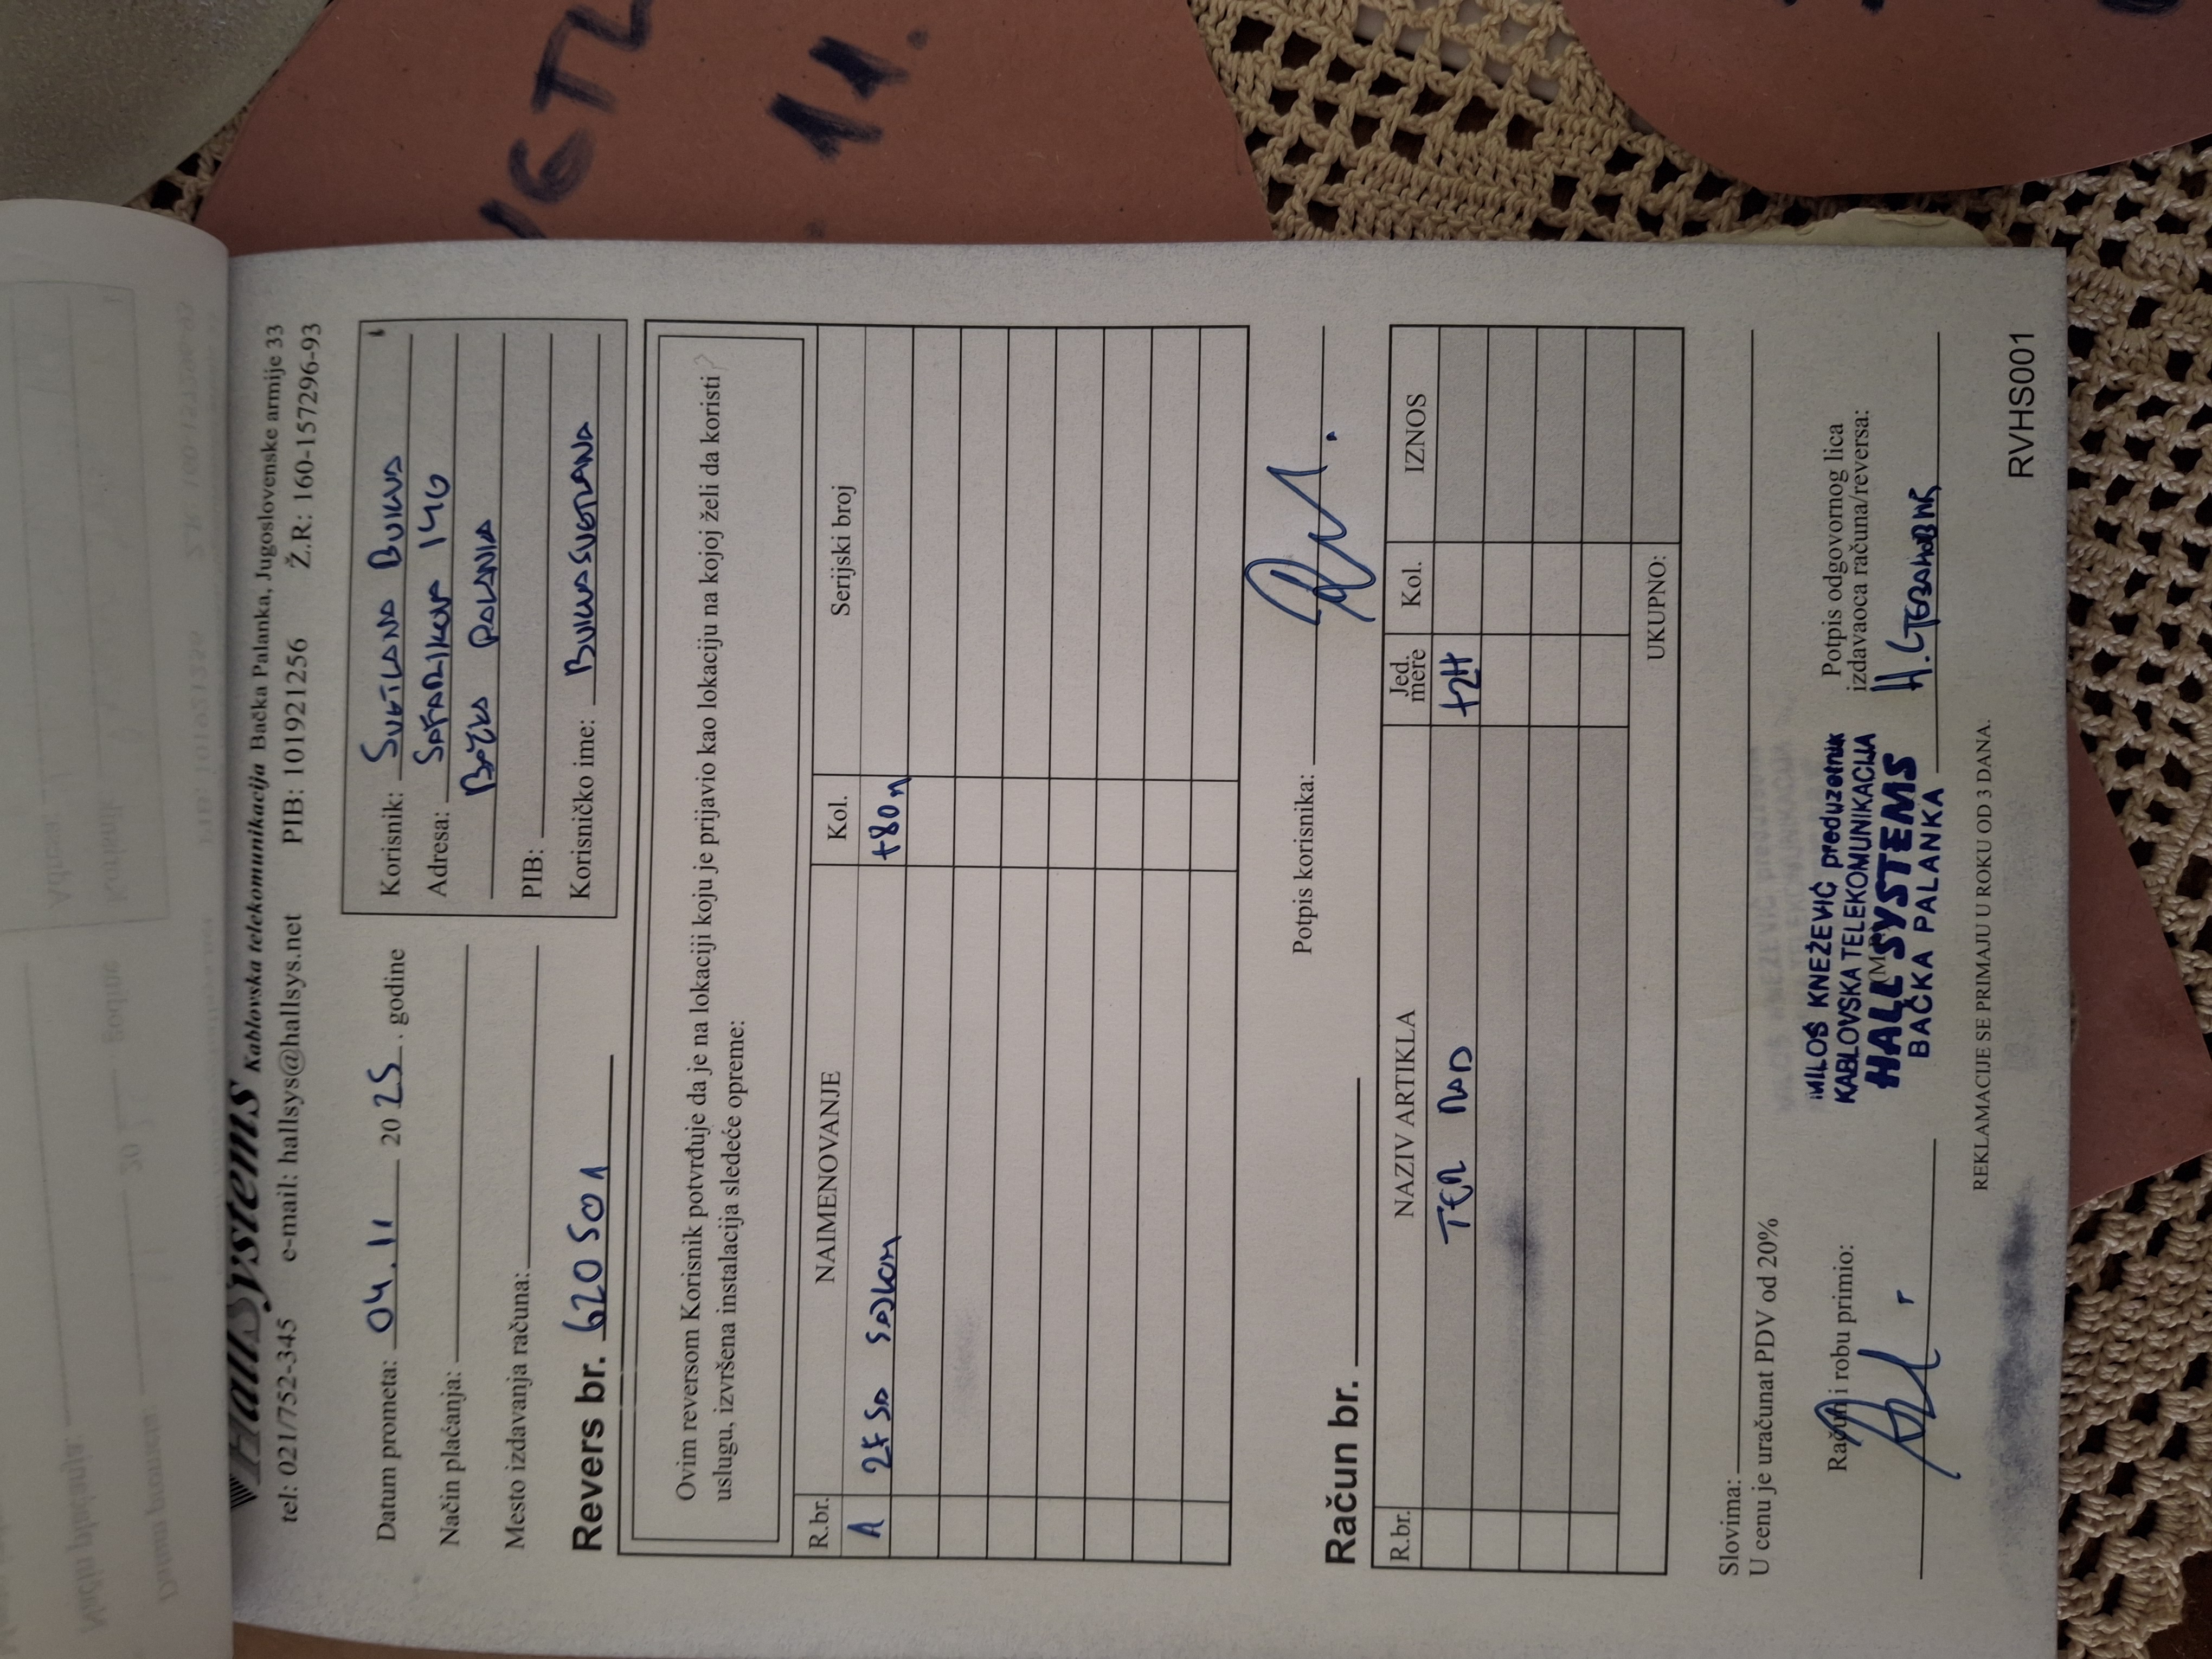 HallSystems Kablovska telekomunikacija Bačka Palanka, Jugoslovenske armije 33
tel: 021/7752-345 e-mail: hallsys@hallsys.net PIB: 101921256 Ž.R: 160-157296-93
Datum prometa: 04.11 2025. godine
Način plaćanja:
Mesto izdavanja računa:
Korisnik: Svetlana Bukva
Adresa: Safarikova 146
Bačka Palanka
PIB:
Korisničko ime: Bukvasvetlana
Revers br. 620 501
Ovim reversom Korisnik potvrđuje da je na lokaciji koju je prijavio kao lokaciju na kojoj želi da koristi
uslugu, izvršena instalacija sledeće opreme:
R.br. NAIMENOVANJE Kol. Serijski broj
1 2F sa sajlom +80m
Potpis korisnika:
Račun br.
R.br. NAZIV ARTIKLA Jed. mere Kol. IZNOS
TER RAD +2H
UKUPNO:
Slovima:
U cenu je uračunat PDV od 20%
Račun i robu primio:
(M.P.)
MILOŠ KNEŽEVIĆ preduzetnik
KABLOVSKA TELEKOMUNIKACIJA
HALL SYSTEMS
BAČKA PALANKA
Potpis odgovornog lica
izdavaoca računa/reversa:
REKLAMACIJE SE PRIMAJU U ROKU OD 3 DANA.
RVHS001
11.